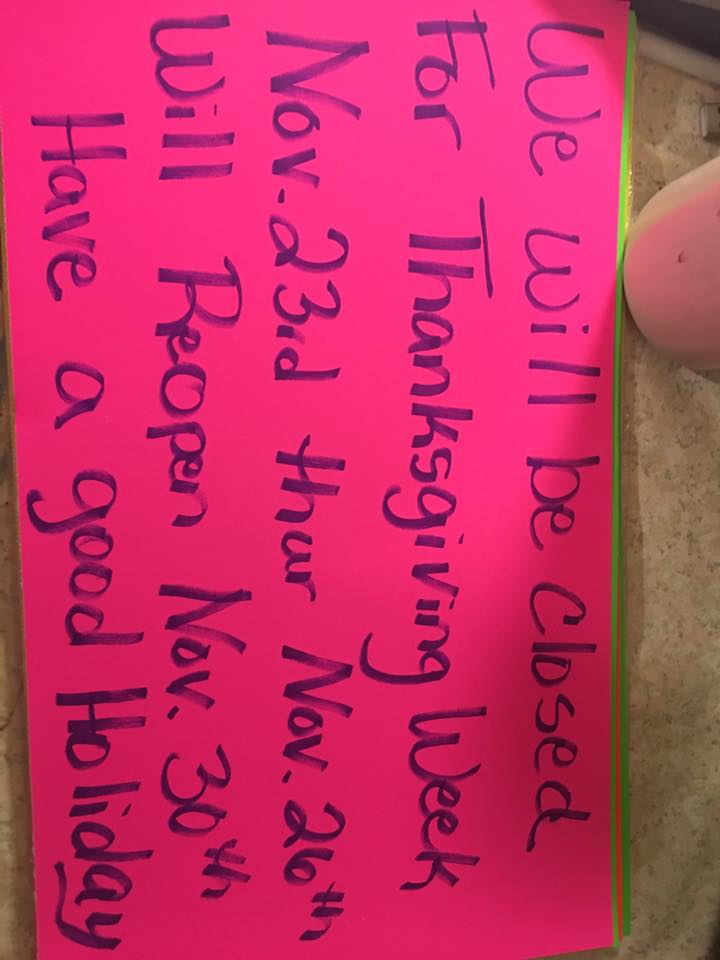 We will be closed
For Thanksgiving Week
Nov. 23rd thur Nov. 26th
Will Reopen Nov. 30th
Have a good Holiday